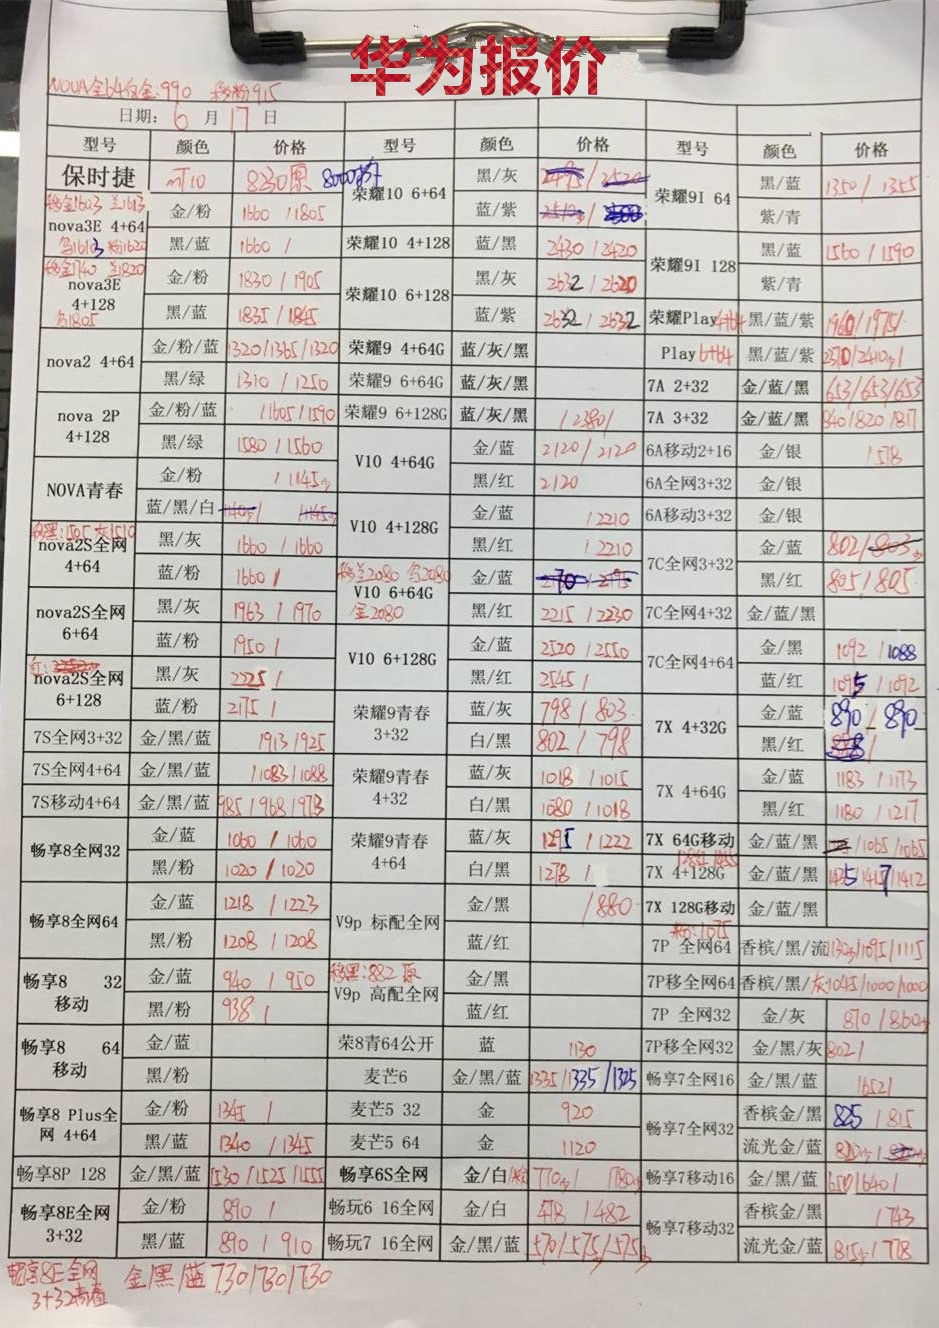 华为报价
NOVA全64白金:990 移粉915
日期: 6 月 17 日
型号 颜色 价格 型号 颜色 价格 型号 颜色 价格
保时捷 MT10 8230原 8000 荣耀10 6+64 黑/灰 荣耀9I 64 黑/蓝 1350 / 1355
移金1603 兰1613
nova3E 4+64 金/粉 1660 / 1805 蓝/紫 紫/青
粉1620
黑/蓝 1660 / 荣耀10 4+128 蓝/黑 2430 / 2420 荣耀9I 128 黑/蓝 1560 / 1590
移金1740 兰1820
nova3E 4+128 金/粉 1830 / 1905 荣耀10 6+128 黑/灰 2632 / 2620 紫/青
1805
黑/蓝 1835 / 1845 蓝/紫 2632 / 2632 荣耀Play4+64 黑/蓝/紫 1960/1975/
nova2 4+64 金/粉/蓝 1320/1365/1320 荣耀9 4+64G 蓝/灰/黑 Play6+64 黑/蓝/紫
黑/绿 1310 / 1250 荣耀9 6+64G 蓝/灰/黑 7A 2+32 金/蓝/黑 653/653/653
nova 2P 4+128 金/粉/蓝 /1605/1590 荣耀9 6+128G 蓝/灰/黑 /2380/ 7A 3+32 金/蓝/黑 840/820/817
黑/绿 1580 / 1560 V10 4+64G 金/蓝 2120 / 2120 6A移动2+16 金/银 /578
NOVA青春 金/粉 / 1145 黑/红 2120 6A全网3+32 金/银
蓝/黑/白 V10 4+128G 金/蓝 / 2210 6A移动3+32 金/银
移黑:1505 灰1510
nova2S全网 4+64 黑/灰 1660 / 1660 黑/红 / 2210 7C全网3+32 金/蓝 802/803
蓝/粉 1660 / 移兰2080 2080 V10 6+64G 金2080 金/蓝 黑/红 805/805
nova2S全网 6+64 黑/灰 1963 / 1970 黑/红 2215 / 2230 7C全网4+32 金/蓝/黑
蓝/粉 1950 / V10 6+128G 金/蓝 2520 / 2550 7C全网4+64 金/黑 1092 / 1088
红:
nova2S全网 6+128 黑/灰 2225 / 黑/红 2545 / 蓝/红 1095 / 1092
蓝/粉 2175 / 荣耀9青春 3+32 蓝/灰 798 / 803 7X 4+32G 金/蓝 890 / 890
7S全网3+32 金/黑/蓝 /913/925 白/黑 802 / 798 黑/红
7S全网4+64 金/黑/蓝 /1083/1088 荣耀9青春 4+32 蓝/灰 1018 / 1015 7X 4+64G 金/蓝 1183 / 1173
7S移动4+64 金/黑/蓝 985/968/973 白/黑 1080 / 1018 黑/红 1180 / 1217
畅享8全网32 金/蓝 1060 / 1060 荣耀9青春 4+64 蓝/灰 1295 / 1222 7X 64G移动 金/蓝/黑 /1065/1065
黑/粉 1020 / 1020 白/黑 1278 / 7X 4+128G 金/蓝/黑 1435/1417/1412
畅享8全网64 金/蓝 1218 / 1223 V9p 标配全网 金/黑 /880 7X 128G移动 金/蓝/黑
粉:1075
黑/粉 1208 / 1208 蓝/红 7P 全网64 香槟/黑/流 /1095/1115
畅享8 32 移动 金/蓝 940 / 950 移黑:882 原 V9p 高配全网 金/黑 7P移全网64 香槟/黑/灰 1045/1000/1000
黑/粉 938 / 蓝/红 7P 全网32 金/灰 870 /860
畅享8 64 移动 金/蓝 荣8青64公开 蓝 1130 7P移全网32 金/黑/灰 802/
黑/粉 麦芒6 金/黑/蓝 1335/1335/1325 畅享7全网16 金/黑/蓝 /652/
畅享8 Plus全网 4+64 金/粉 1345 / 麦芒5 32 金 920 畅享7全网32 香槟金/黑 825 / 815
黑/蓝 1340 / 1345 麦芒5 64 金 1120 流光金/蓝
畅享8P 128 金/黑/蓝 1530/1525/1555 畅享6S全网 金/白 770 / 780 畅享7移动16 金/黑/蓝 650/640/
畅享8E全网 3+32 金/粉 890 / 畅玩6 16全网 金/白 478 / 482 畅享7移动32 香槟金/黑 / 743
黑/蓝 890 / 910 畅玩7 16全网 金/黑/蓝 570/575/575 流光金/蓝 815 / 778
畅享8E全网 3+32青春 金/黑/蓝 730/730/730